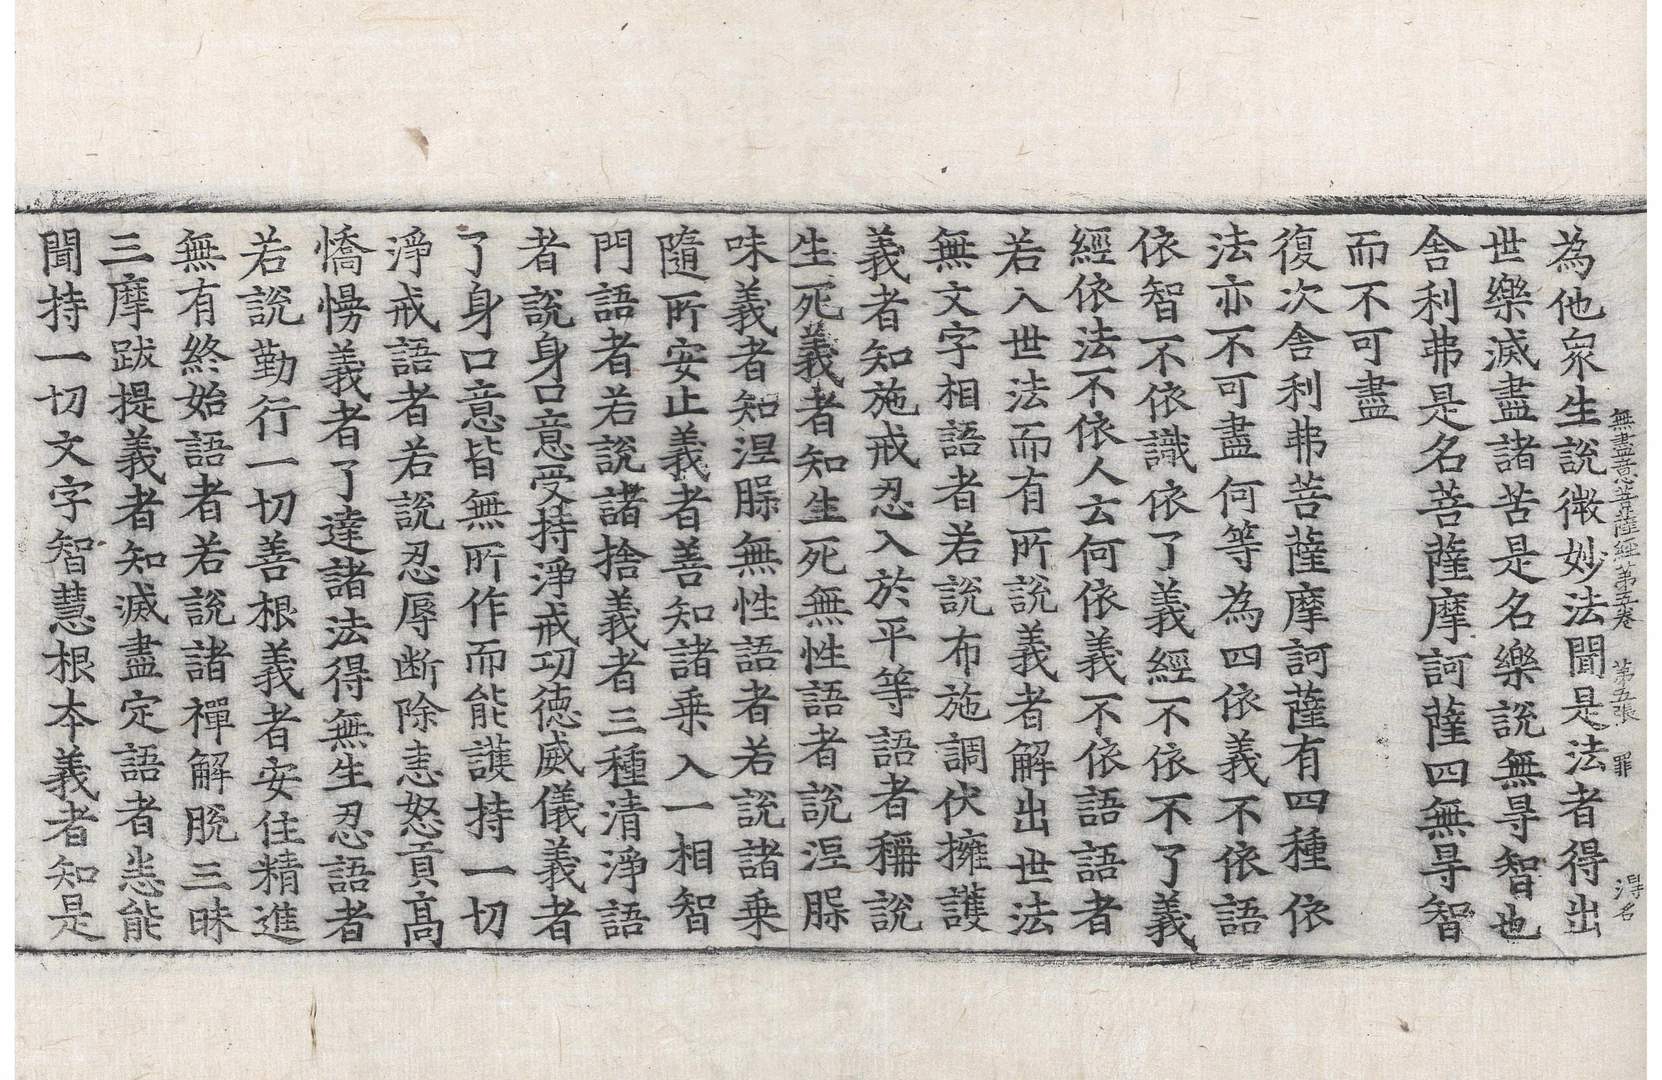 無盡意菩薩經苐五卷 第五張 罪 淂名
為他衆生說微妙法聞是法者得出
世樂滅盡諸苦是名樂說無㝵智也
舎利弗是名菩薩摩訶薩四無㝵智
而不可盡
復次舎利弗菩薩摩訶薩有四種依
法亦不可盡何等為四依義不依語
依智不依識依了義經不依不了義
經依法不依人云何依義不依語語者
若入世法而有所說義者解出世法
無文字相語者若說布施調伏擁護
義者知施戒忍入於平等語者稱說
生死義者知生死無性語者說涅槃
味義者知涅槃無性語者若說諸乗
隨所安止義者善知諸乗入一相智
門語者若說諸捨義者三種清淨語
者說身口意受持淨戒㓛德威儀義者
了身口意皆無所作而能護持一切
淨戒語者若說忍辱断除恚怒貢高
憍慢義者了達諸法得無生忍語者
若說勤行一切善根義者安住精進
無有終始語者若說諸禪解脫三昧
三摩跋提義者知滅盡定語者悉能
聞持一切文字智慧根夲義者知是